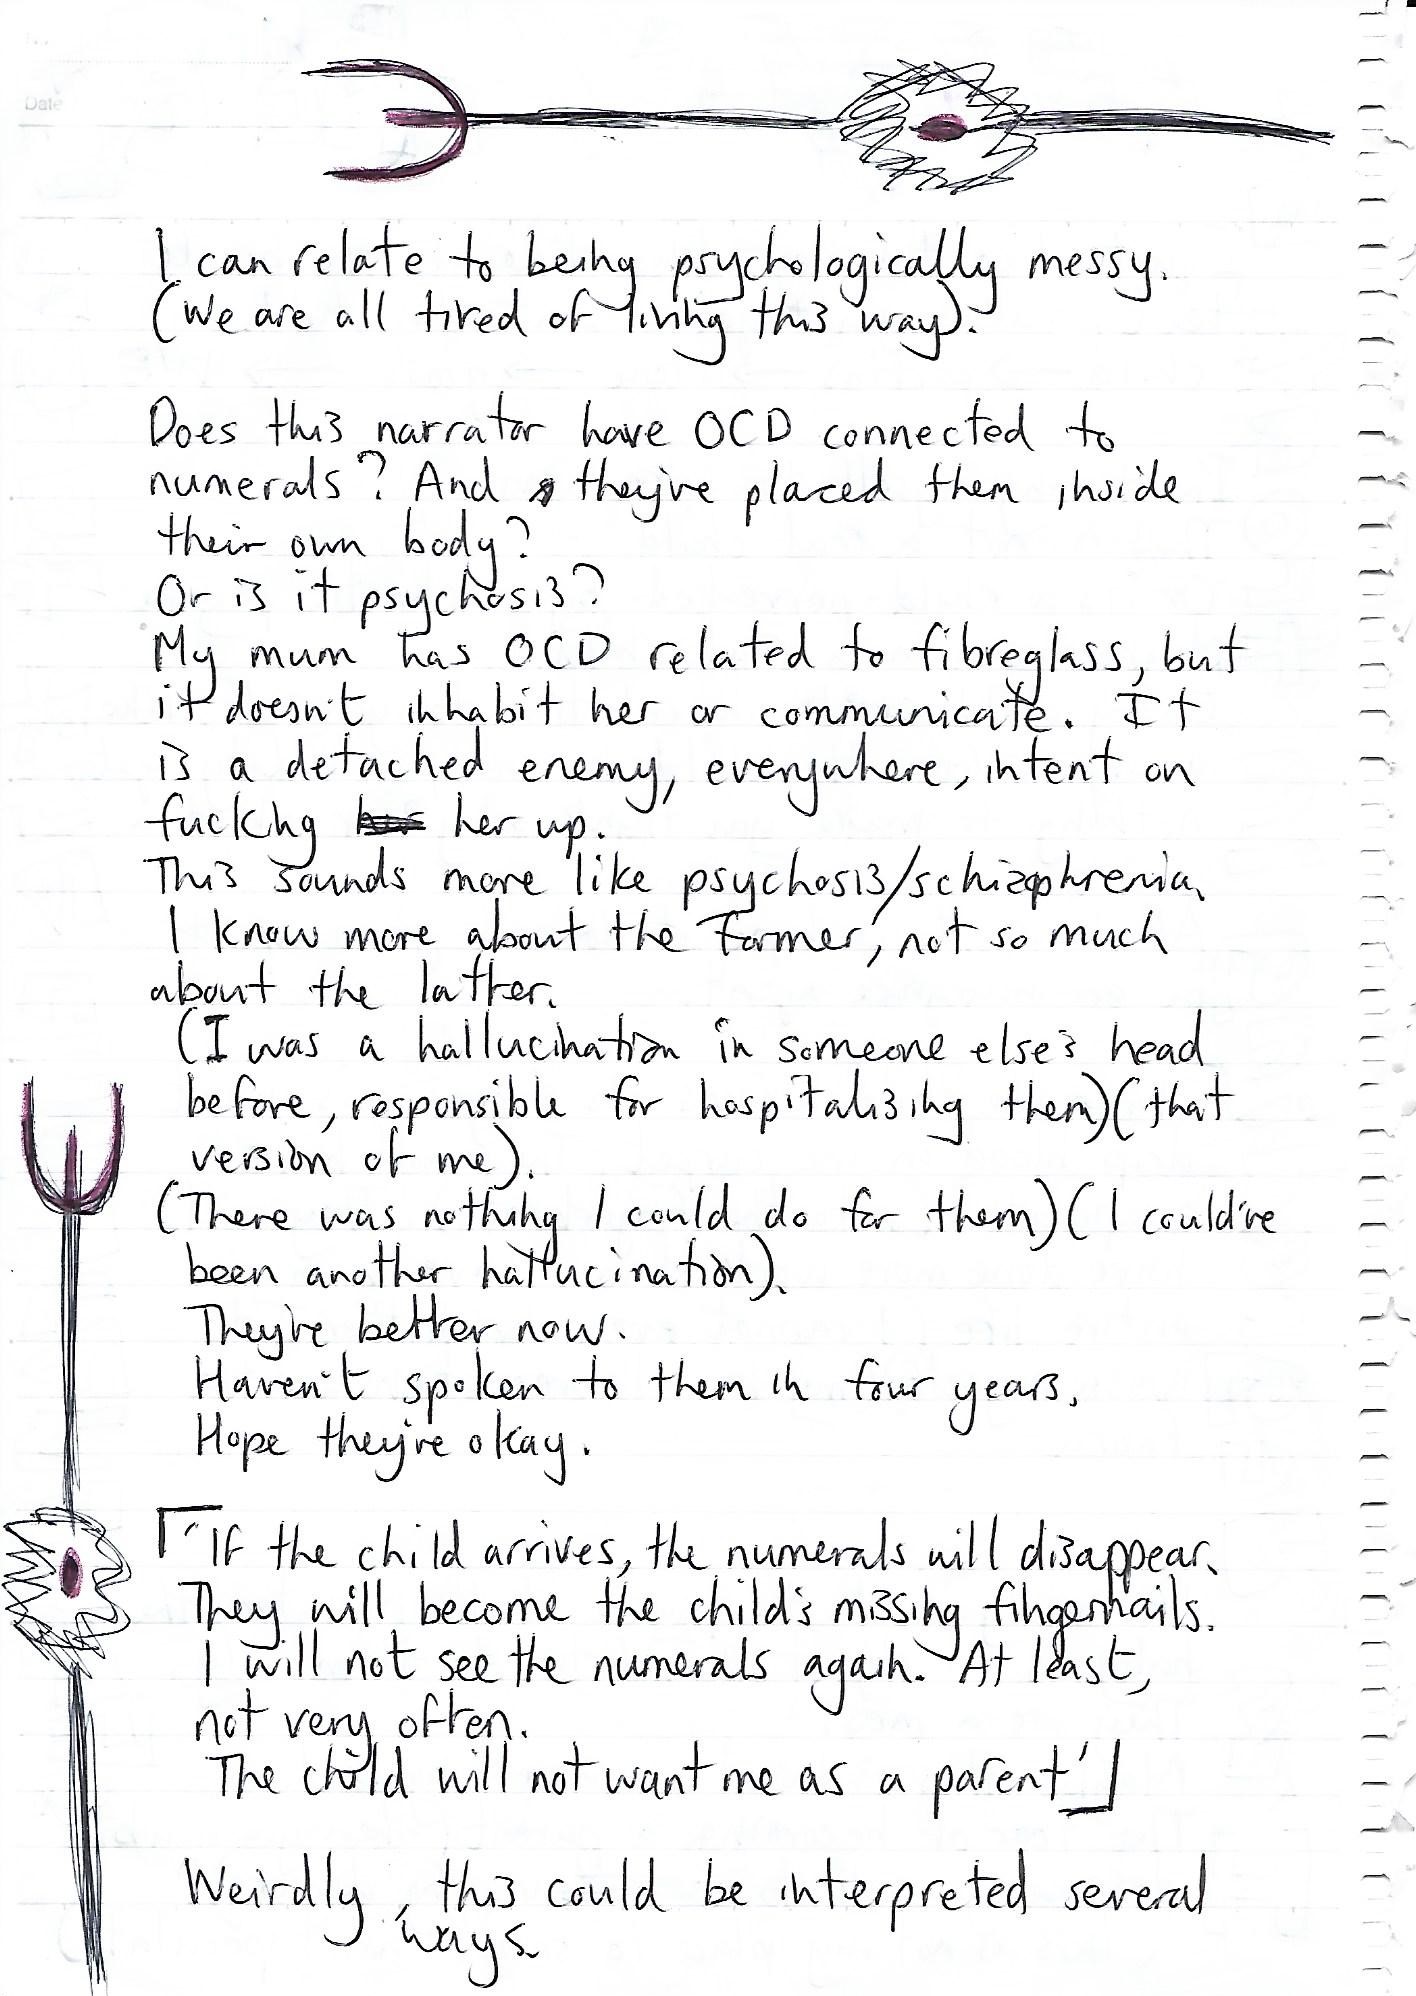 Date
I can relate to being psychologically messy.
(We are all tired of living this way).
Does this narrator have OCD connected to
numerals? And they've placed them inside
their own body?
Or is it psychosis?
My mum has OCD related to fibreglass, but
it doesn't inhabit her or communicate. It
is a detached enemy, everywhere, intent on
fucking her up.
This sounds more like psychosis/schizophrenia.
I know more about the former, not so much
about the latter.
(I was a hallucination in someone else's head
before, responsible for hospitalising them)(that
version of me).
(There was nothing I could do for them)(I could've
been another hallucination).
They're better now.
Haven't spoken to them in four years.
Hope they're okay.
「'If the child arrives, the numerals will disappear.
They will become the child's missing fingernails.
I will not see the numerals again. At least,
not very often.
The child will not want me as a parent'」
Weirdly, this could be interpreted several
ways.